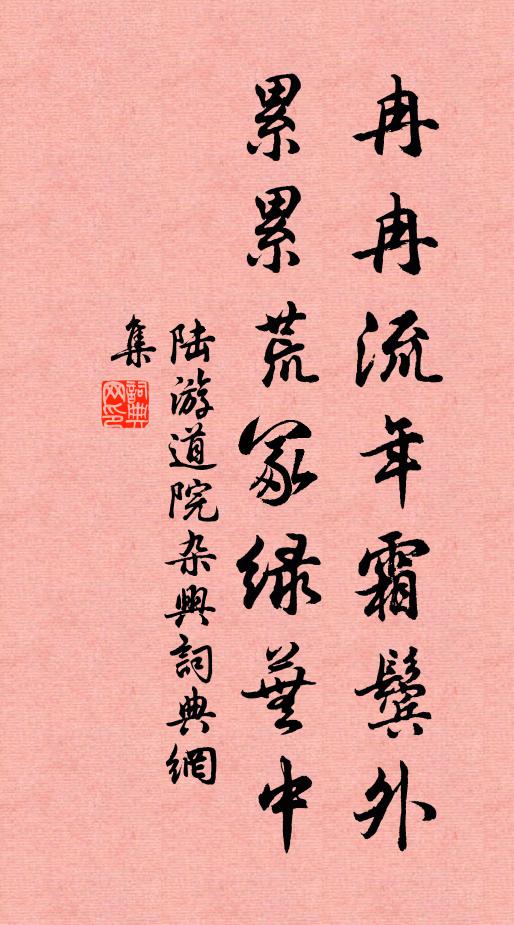 冉冉流年霜鬓外
累累荒冢绿芜中
陆游道院杂兴詞典網
集
詞典網印